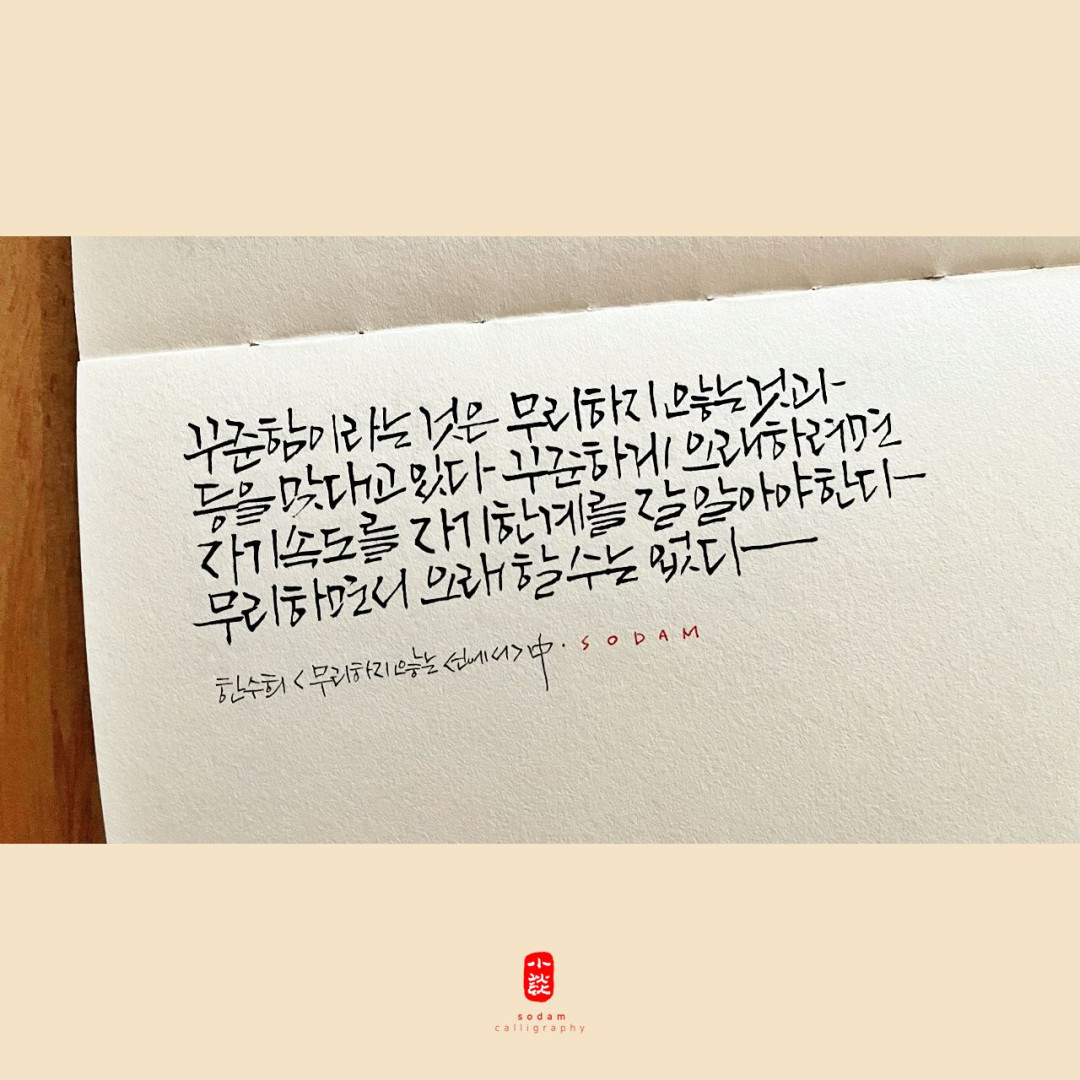 꾸준함이라는 것은 무리하지 않는 것과
등을 맞대고 있다 꾸준하게 오래하려면
자기속도를 자기한계를 잘 알아야한다
무리하면서 오래 할 수는 없다
한수희 <무리하지 않는 선에서> 中 · SODAM
小談
sodam
calligraphy